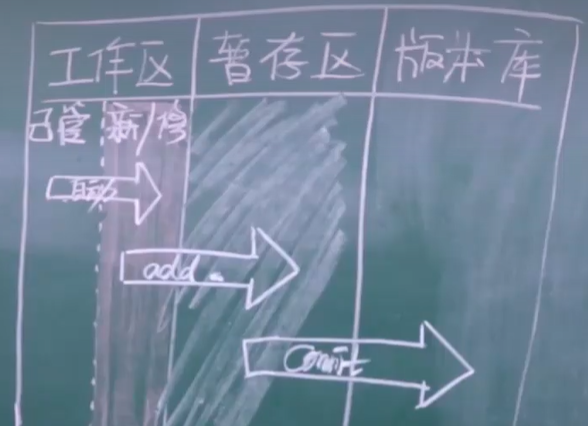 工作区 暂存区 版本库
已管 新/修
自动
add .
commit